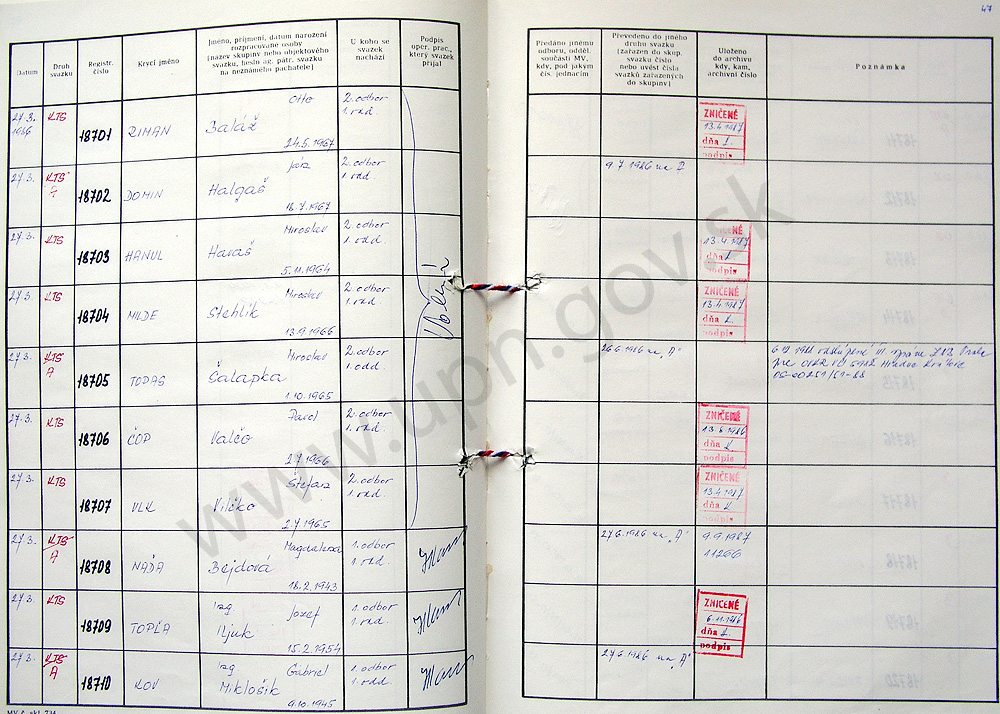 47
Datum
Druh svazku
Registr. číslo
Krycí jméno
Jméno, příjmení, datum narození
rozpracované osoby
(název skupiny nebo objektového
svazku, heslo ag. pátr. svazku
na neznámého pachatele)
U koho se
svazek
nachází
Podpis
oper. prac.,
který svazek
přijal
Předáno jinému
odboru, odděl.
součásti MV,
kdy, pod jakým
čís. jednacím
Převedeno do jiného
druhu svazku
(zařazen do skup.
svazku číslo
nebo uvést čísla
svazků zařazených
do skupiny)
Uloženo
do archivu
kdy, kam,
archivní číslo
Poznámka
27.3. 1986 KTS 18701 ZIMAN Otto Baláž 24.5.1967 2. odbor 1. odd.
ZNIČENÉ 13.4.1987 dňa podpis
27.3. KTS 18702 DOMIN Halgaš 18.7.1967 2. odbor 1. odd.
9.7.1986 na
27.3. KTS 18703 HANUL Miroslav Haraš 5.11.1964 2. odbor 1. odd.
ZNIČENÉ 13.4.1987 dňa podpis
27.3. KTS 18704 MILDE Miroslav Stehlík 13.9.1966 2. odbor 1. odd.
ZNIČENÉ 13.4.1987 dňa podpis
27.3. KTS A 18705 TOPAS Miroslav Šalapka 1.10.1965 2. odbor 1. odd.
26.6.1986 na „A"
27.3. KTS 18706 ČOP Pavol Valčo 2.7.1966 2. odbor 1. odd.
ZNIČENÉ dňa podpis
27.3. KTS 18707 VLK Štefan Vilčko 2.7.1965 2. odbor 1. odd.
ZNIČENÉ 13.4.1987 dňa podpis
27.3. KTS A 18708 NAĎA Magdaléna Bejdová 18.2.1943 1. odbor 1. odd.
27.6.1986 na „A" 9.9.1987
11266
27.3. KTS 18709 TOPĽA Ing. Jozef Iljuk 15.2.1954 1. odbor 1. odd.
ZNIČENÉ 6.11.1986 dňa podpis
27.3. KTS A 18710 KOV Ing. Gabriel Miklošik 9.10.1945 1. odbor 1. odd.
27.6.1986 na „A"
www.upn.gov.sk